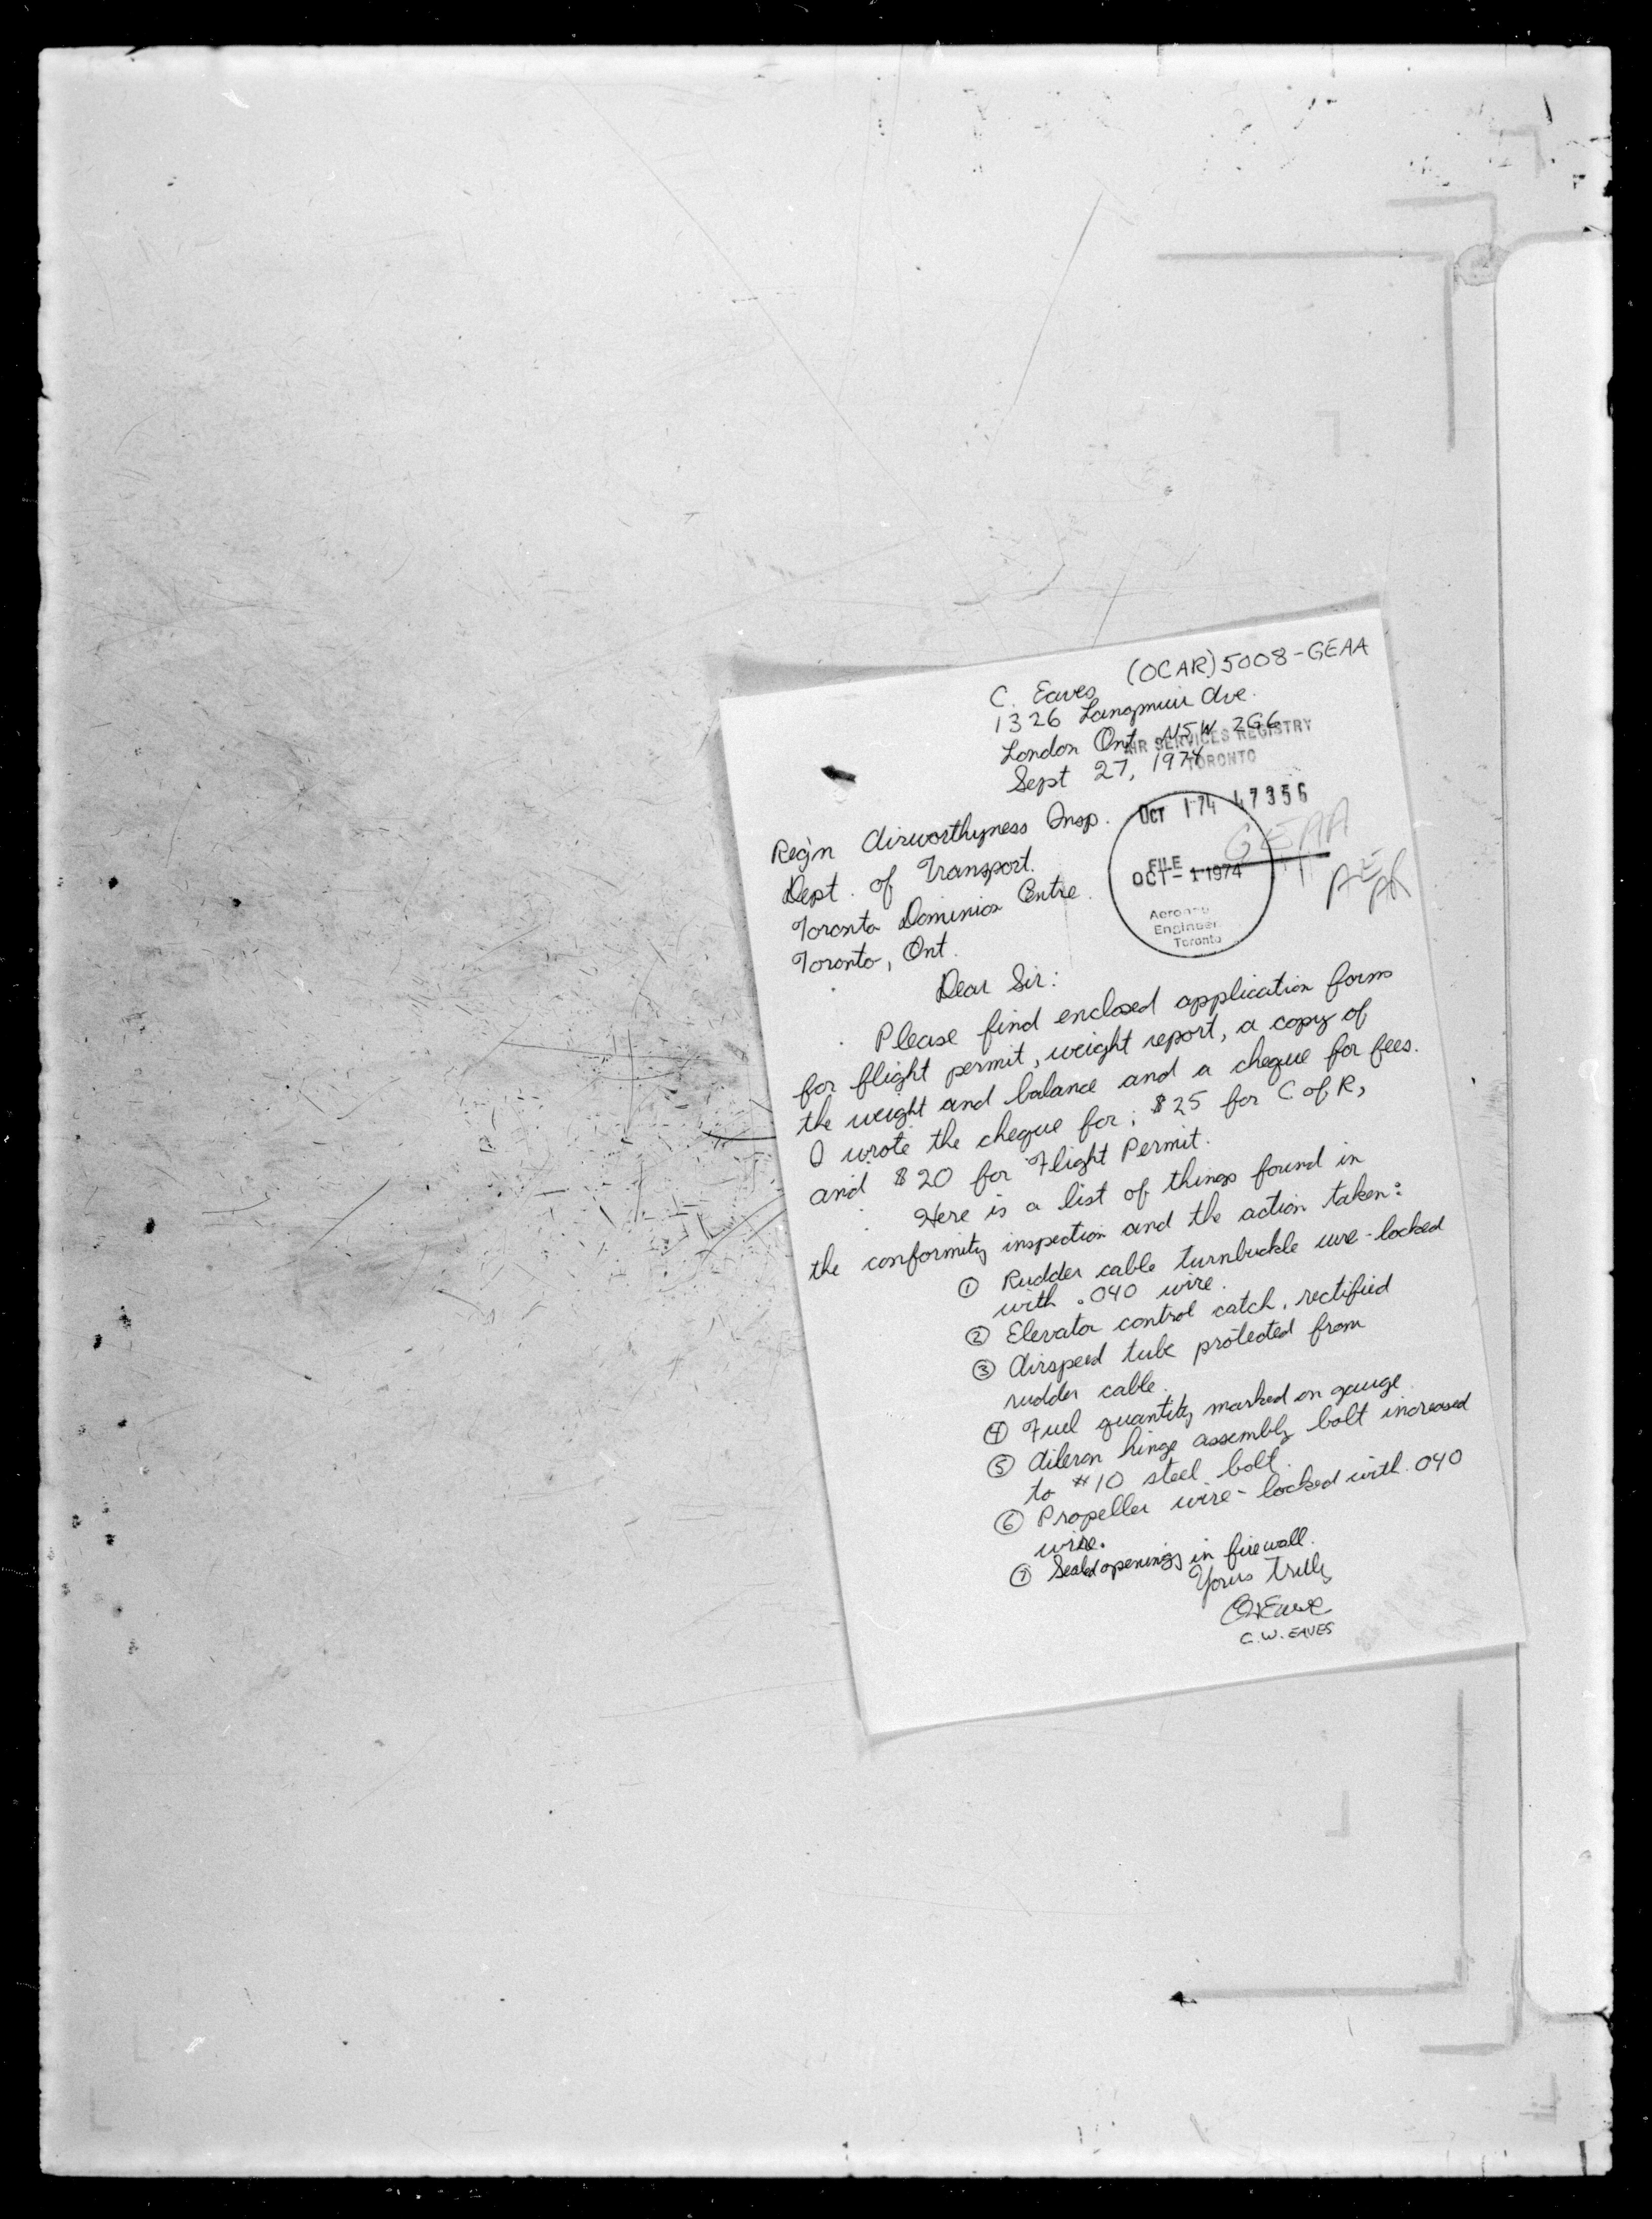 (OCAR) 5008-GEAA
C. Eaves
1326 Langmuir Ave.
London Ont. N5W 2G6
Sept 27, 1974
AIR SERVICES REGISTRY
TORONTO
OCT 1 74 47356
GEAA
FILE
OCT - 1 1974
Engineer
Toronto
Reg'n Airworthyness Insp.
Dept. of Transport.
Toronto Dominion Centre.
Toronto, Ont.
Dear Sir:
Please find enclosed application forms
for flight permit, weight report, a copy of
the weight and balance and a cheque for fees.
I wrote the cheque for; $25 for C of R,
and $20 for Flight Permit.
Here is a list of things found in
the conformity inspection and the action taken:
① Rudder cable turnbuckle wire-locked
with .040 wire.
② Elevator control catch, rectified
③ Airspeed tube protected from
rudder cable.
④ Fuel quantity marked on gauge
⑤ Aileron hinge assembly bolt increased
to #10 steel bolt.
⑥ Propeller wire-locked with .040
wire.
⑦ Sealed openings in firewall.
Yours truly
C. W. EAVES